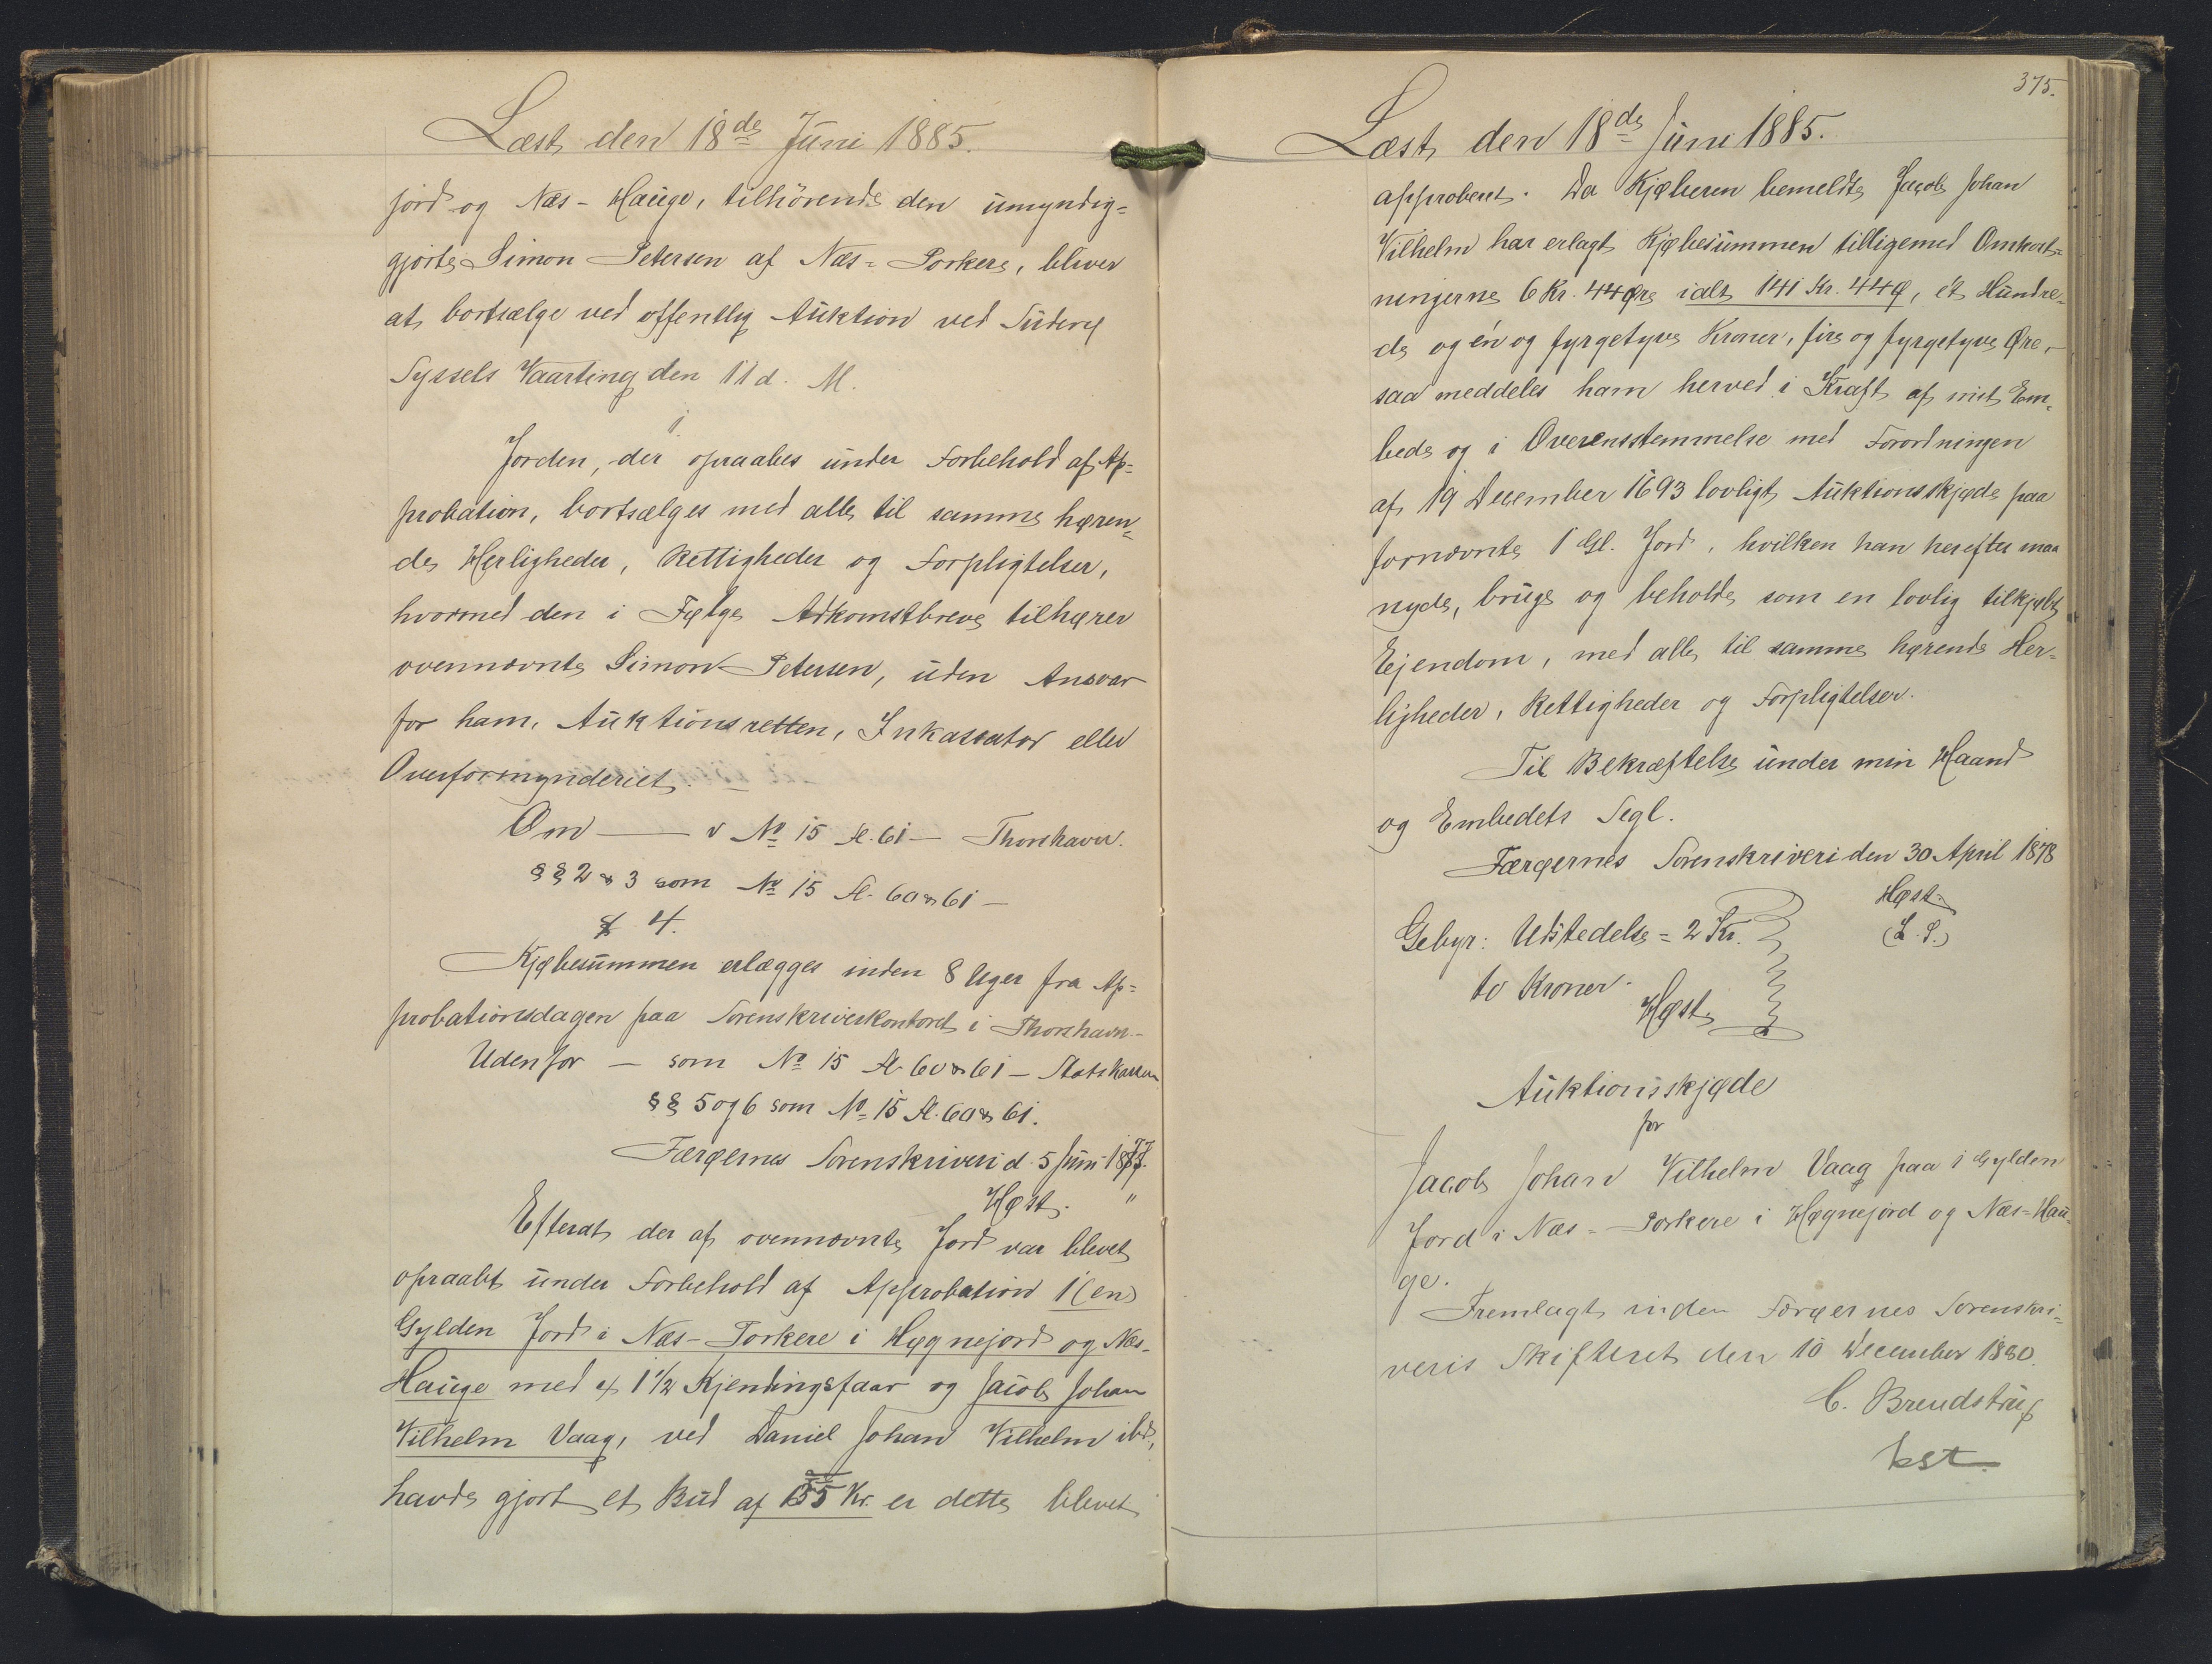 Læst den 18de Juni 1885.
jord og Næs-Hauge, tilhörende den umyndig=
gjorte Simon Petersen af Næs=Porkere, bliver
at bortsælge ved offentlig Auktion ved Suderø
Syssels Vaarting den 11 d. M.
1.
Jorden, der opraabes under Forbehold af Ap=
probation, bortsælges med alle til samme høren=
de Herligheder, Rettigheder og Forpligtelser,
hvormed den i Følge Adkomstbreve tilhører
ovennævnte Simon Petersen, uden Ansvar
for ham, Auktionsretten, Inkassator eller
Overformynderiet.
Om — v No 15 A. 61 — Thorshavn.
§§ 2 & 3 som No 15 A. 60 & 61 —
§ 4.
Kjøbesummen erlægges inden 8 Uger fra Ap=
probationsdagen paa Sorenskriverkontoret i Thorshavn.—
Udenfor — som No 15 A. 60 & 61 — Statskassen
§§ 5 og 6 som No 15 A. 60 & 61.
Færøernes Sorenskriveri d. 5 Juni 1877.
Høst. "
Efterat der af ovennævnte Jord var blevet
opraabt under Forbehold af Approbation 1 (en)
Gylden Jord i Næs-Porkere i Høgnejord og Næs-
Hauge med 1 1/2 Kjendingsfaar og Jacob Johan
Vilhelm Vaag, ved Daniel Johan Vilhelm ibd.,
havde gjort et Bud af 135 Kr. er dette blevet
375.
Læst den 18de Juni 1885.
approberet. Da Kjøberen bemeldte Jacob Johan
Vilhelm har erlagt Kjøbesummen tilligemed Omkost=
ningerne 6 Kr. 44 Øre ialt 141 Kr. 44 Ø, et Hundre=
de og én og fyrgetyve Kroner, fire og fyrgetyve Øre,—
saa meddeles ham herved i Kraft af mit Em=
bede og i Overensstemmelse med Forordningen
af 19 December 1693 lovligt Auktionsskjøde paa
fornævnte 1 Gl. Jord, hvilken han herefter maa
nyde, bruge og beholde som en lovlig tilkjøbt
Ejendom, med alle til samme hørende Her=
ligheder, Rettigheder og Forpligtelser.
Til Bekræftelse under min Haand
og Embedets Segl.
Færøernes Sorenskriveri den 30 April 1878
Høst.
(L. S.)
Gebyr: Udstedelse = 2 Kr.
to Kroner.
Høst
Auktionsskjøde
for
Jacob Johan Vilhelm Vaag paa 1 Gylden
Jord i Næs=Porkere i Høgnejord og Næs=Hau=
ge.
Fremlagt inden Færøernes Sorenskri=
veris Skifteret den 10 December 1880.
C. Brendstrup
kst.